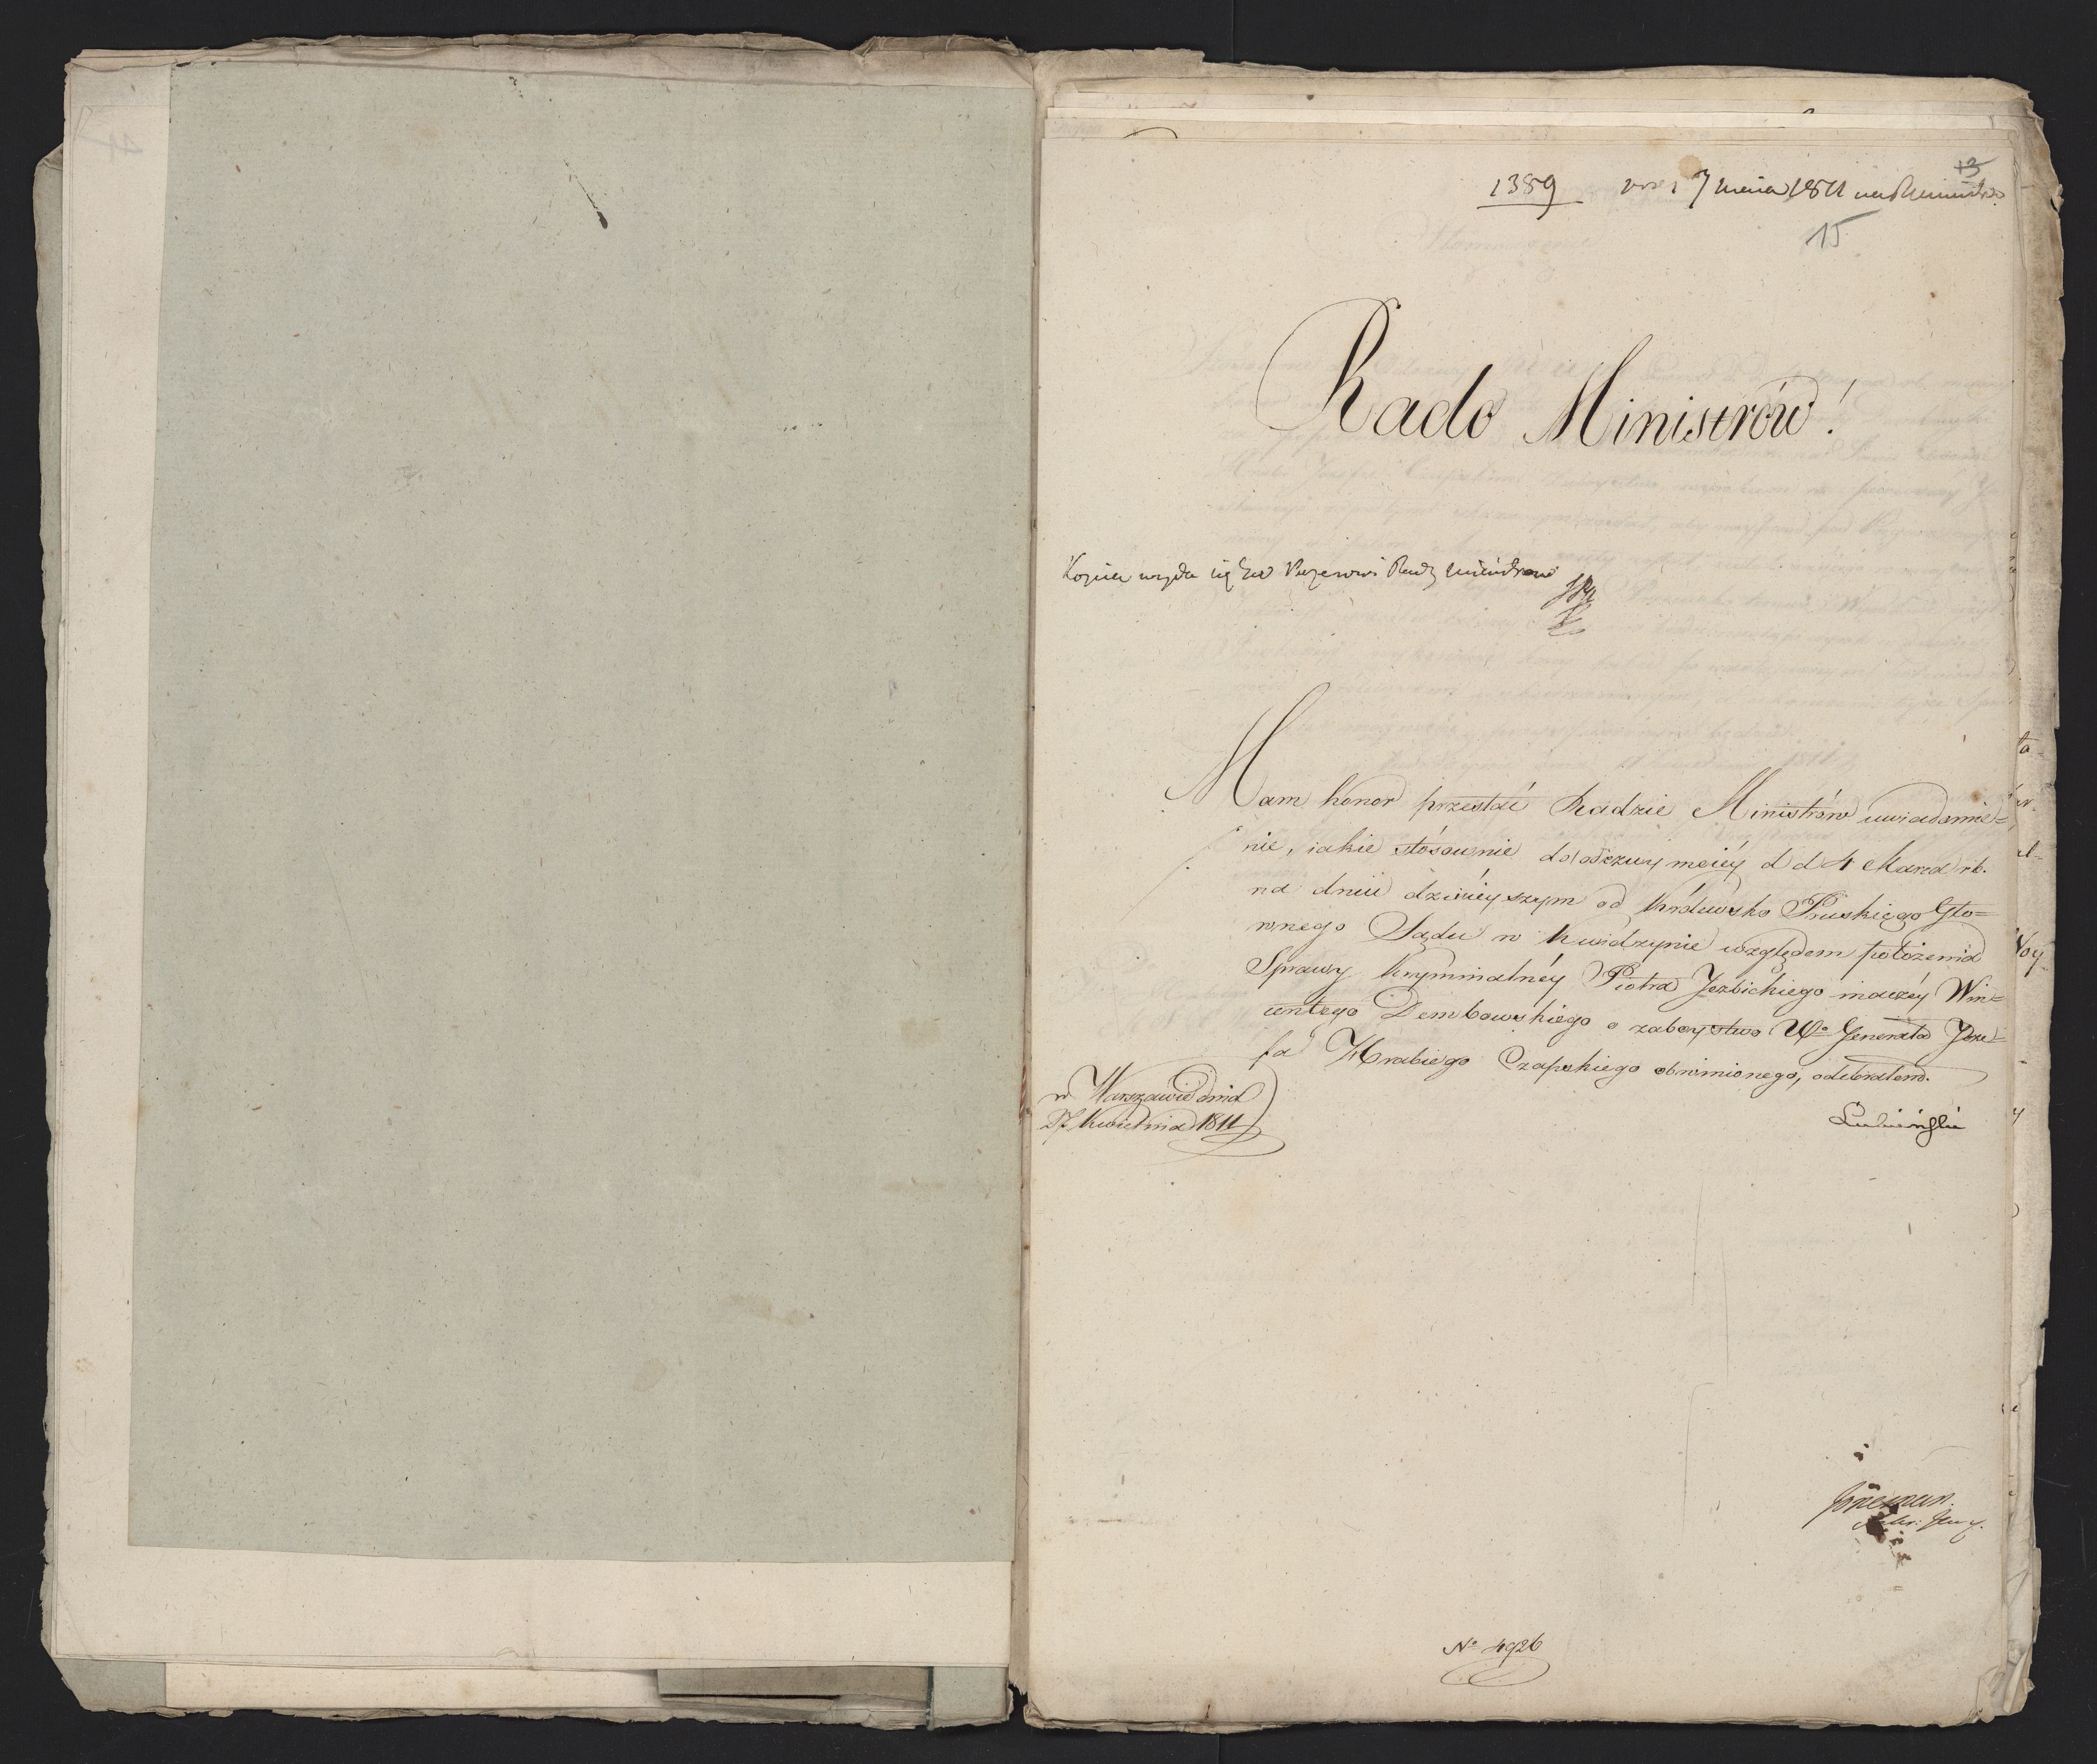 13
1389 7 maia 1811 na R Ministrów
15
Rado Ministrów!
Kopia wyda się JW Prezesowi Rady Ministrów
Mam honor przesłać Radzie Ministrów uwiadomie=
nie, iakie stósownie do odezwy moiéy d d 4 Marca rb.
na dniu dzisieyszym od Królewsko Pruskiego Głó=
wnego Sądu w Kwidzynie względem położenia
Sprawy Kryminalnéy Piotra Jezbickiego inaczéy Win=
centego Dembowskiego o zaboystwo Wo Generała Joze=
fa Hrabiego Czapskiego obwinionego, odebrałem.
w Warszawie dnia
27 Kwietnia 1811
Łubieński
No 4926